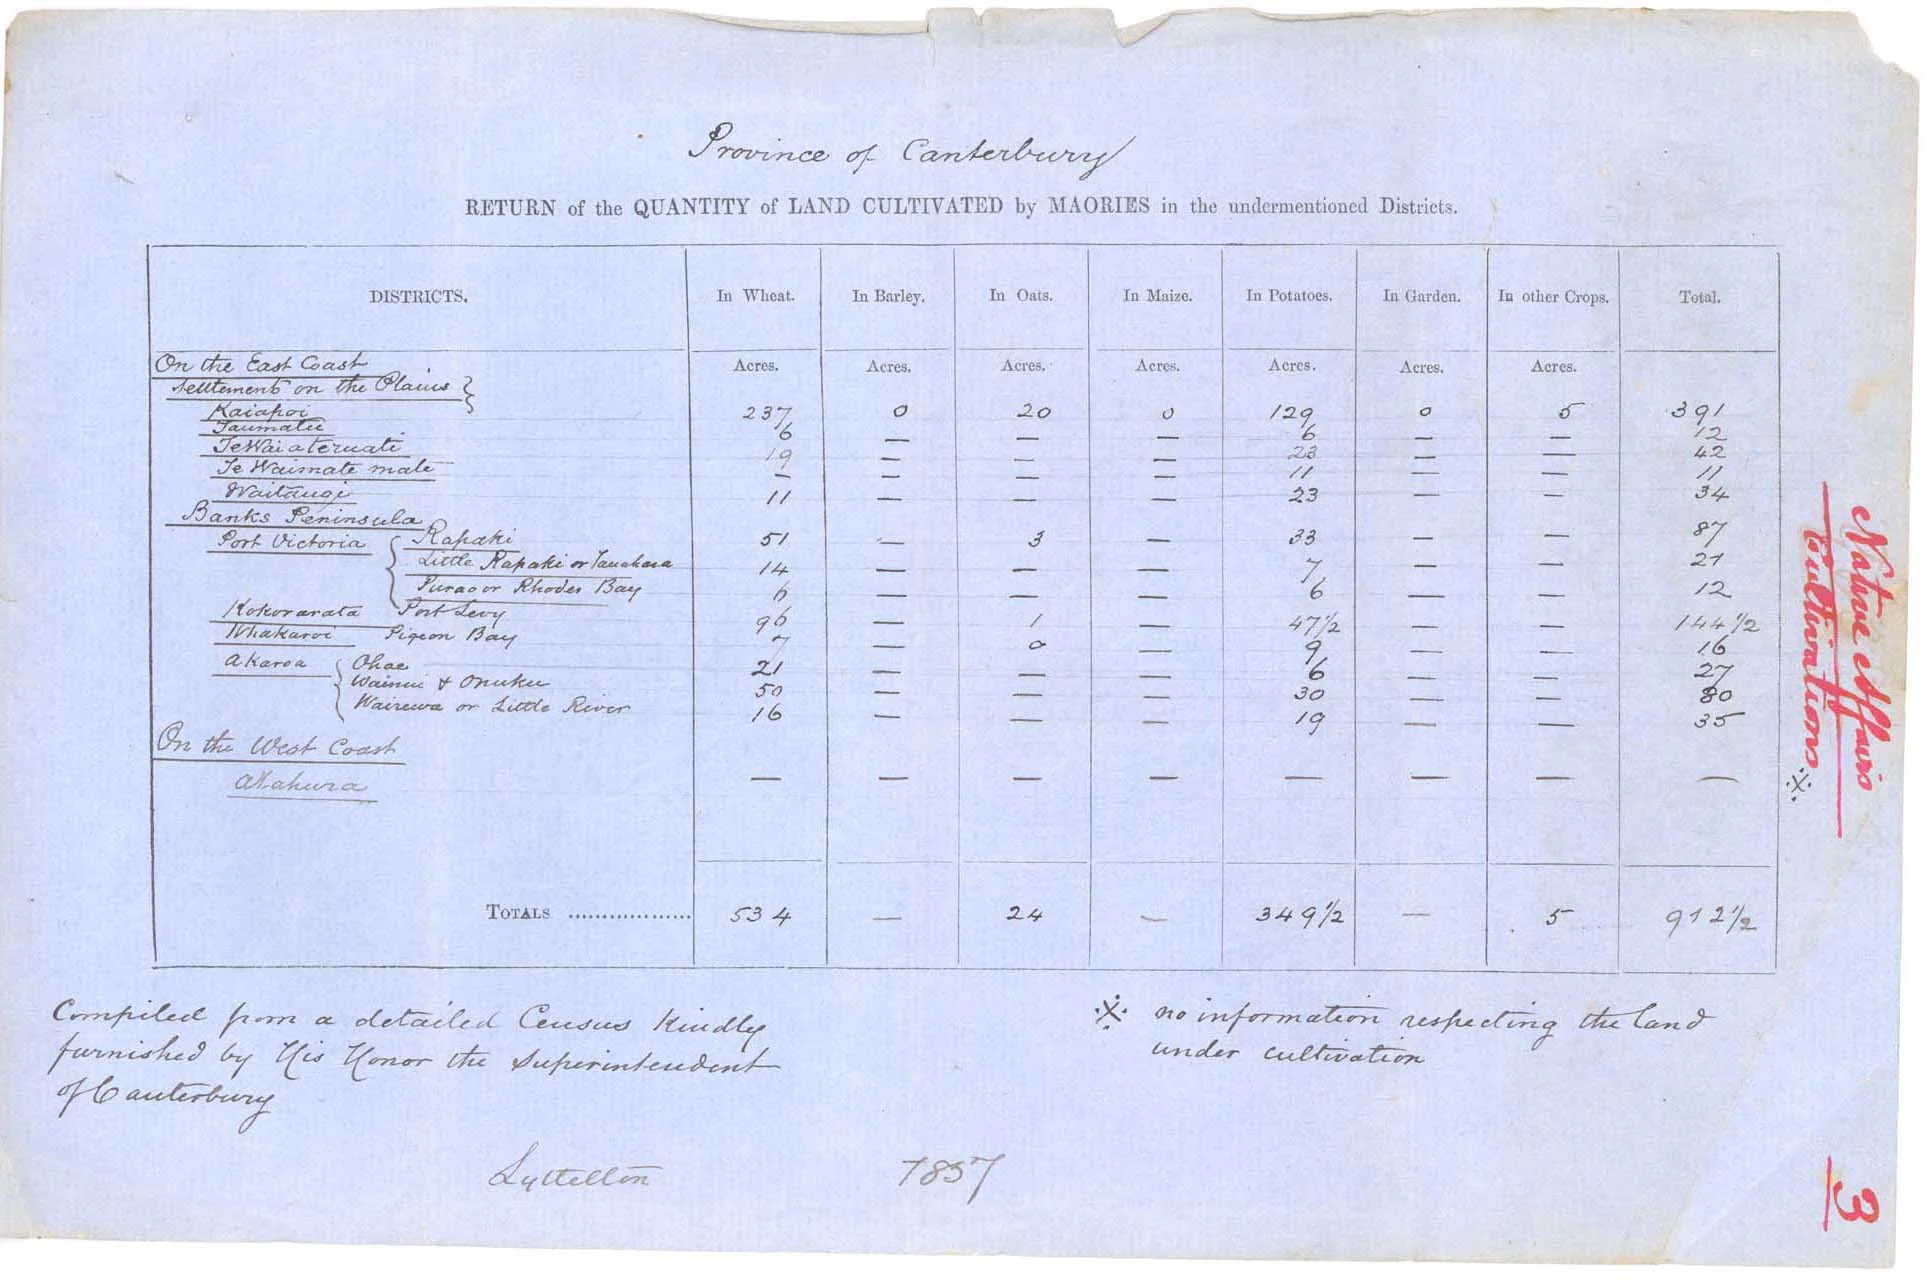 Province of Canterbury
RETURN of the QUANTITY of LAND CULTIVATED by MAORIES in the undermentioned Districts.
DISTRICTS. In Wheat. In Barley. In Oats. In Maize. In Potatoes. In Garden. In other Crops. Total.
On the East Coast Acres. Acres. Acres. Acres. Acres. Acres. Acres.
Settlements on the Plains
Kaiapoi 237 0 20 0 129 0 5 391
Taumatu 6 — — — 6 — — 12
Te Waiateruati 19 — — — 23 — — 42
Te Waimate mate — — — — 11 — — 11
Waitangi 11 — — — 23 — — 34
Banks Peninsula
Port Victoria Rapaki 51 — 3 — 33 — — 87
Little Rapaki or Tauahara 14 — — — 7 — — 21
Purao or Rhodes Bay 6 — — — 6 — — 12
Kokorarata Port Levy 96 — 1 — 47½ — — 144½
Whakaroi Pigeon Bay 7 — 0 — 9 — — 16
Akaroa Ohae 21 — — — 6 — — 27
Wainui & Onuku 50 — — — 30 — — 80
Wairewa or Little River 16 — — — 19 — — 35
On the West Coast
Arahura — — — — — — — — ※
TOTALS .................. 534 — 24 — 349½ — 5 912½
Compiled from a detailed Census kindly
furnished by His Honor the Superintendent
of Canterbury
※ no information respecting the land
under cultivation
Lyttelton 1857
Native Affairs
Cultivations
3